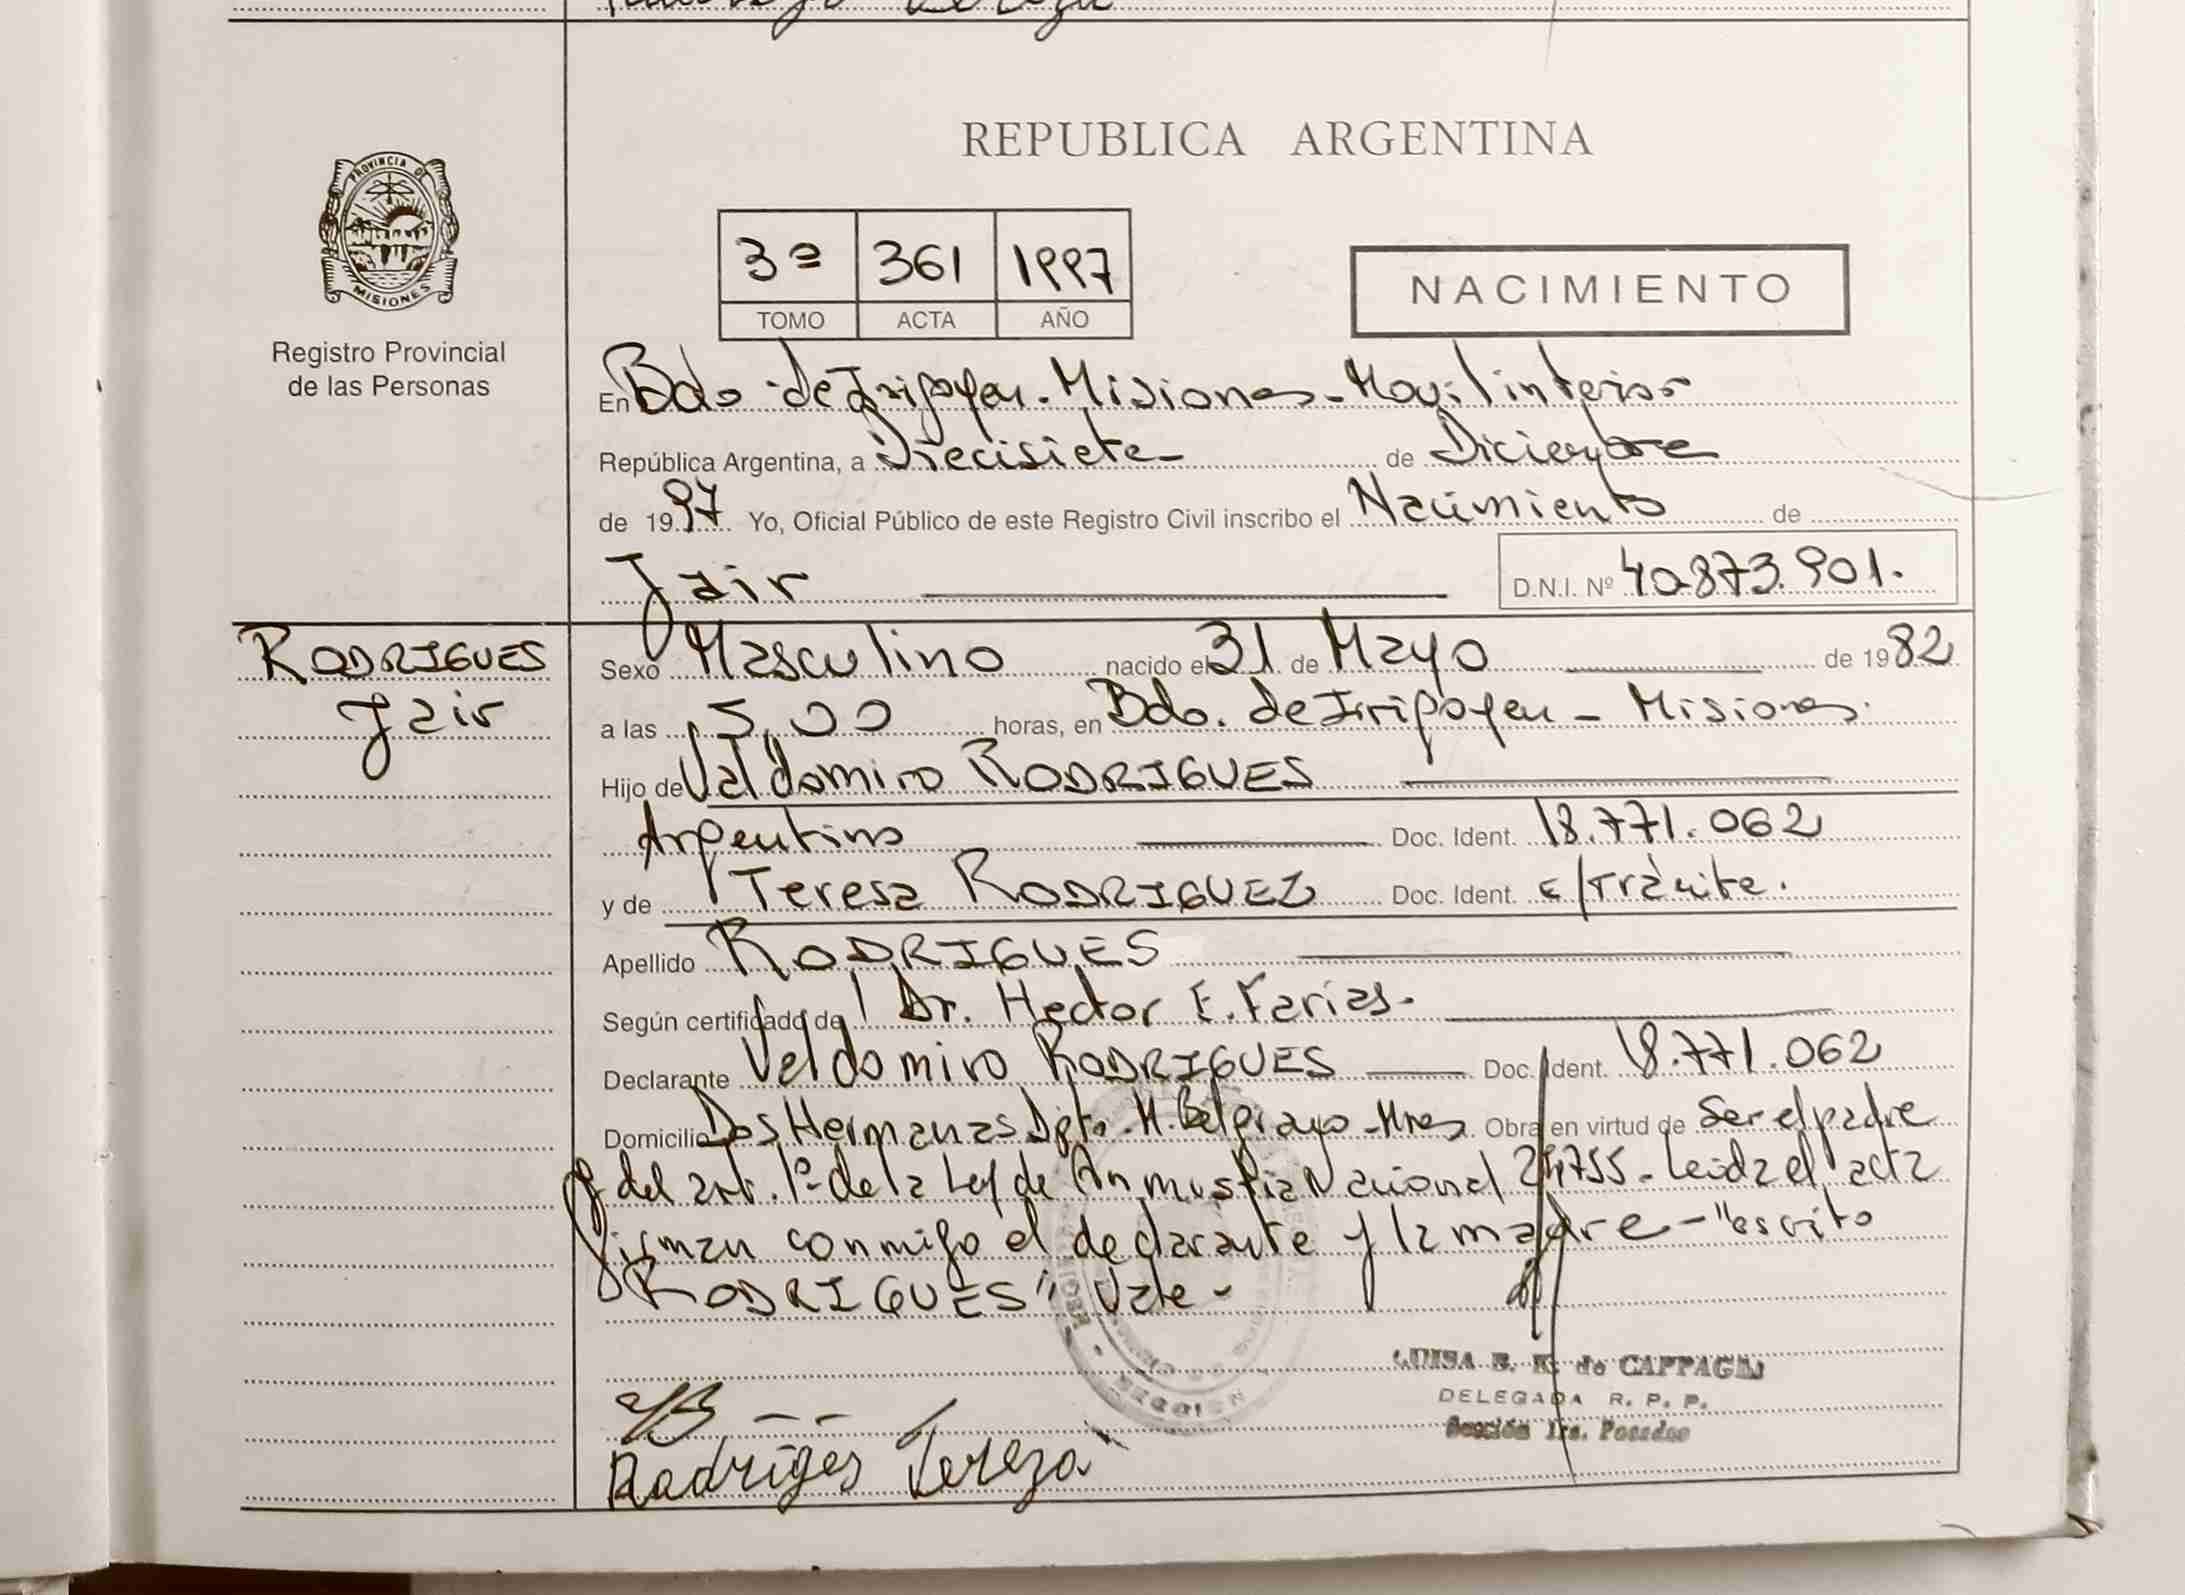 PROVINCIA DE
MISIONES
Registro Provincial
de las Personas
REPUBLICA ARGENTINA
3ª 361 1997
TOMO ACTA AÑO
NACIMIENTO
En Bdo. de Irigoyen - Misiones - Movil interior
República Argentina, a Diecisiete - de Diciembre
de 1997 Yo, Oficial Público de este Registro Civil inscribo el Nacimiento de
Jair D.N.I. Nº 40.873.901.
RODRIGUES
Jair
Sexo Masculino nacido el 31 de Mayo de 1982
a las 5,00 horas, en Bdo. de Irigoyen - Misiones.
Hijo de Valdomiro RODRIGUES
Argentino Doc. Ident. 18.771.062
y de Teresa RODRIGUEZ Doc. Ident. E/Trámite.
Apellido RODRIGUES
Según certificado de Dr. Hector E. Farias.
Declarante Valdomiro RODRIGUES Doc. Ident. 18.771.062
Domicilio Dos Hermanas Dpto. M. Belgrano - Mnes Obra en virtud de Ser el padre
y del art. 1º de la Ley de Anmustia Nacional 24755 - Leida el acta
firman conmigo el declarante y la madre - "escrito
RODRIGUES" Vale -
LUISA B. K. de CAPPAGLI
DELEGADA R. P. P.
Sección 1ra. Posadas
Radriges Tereza